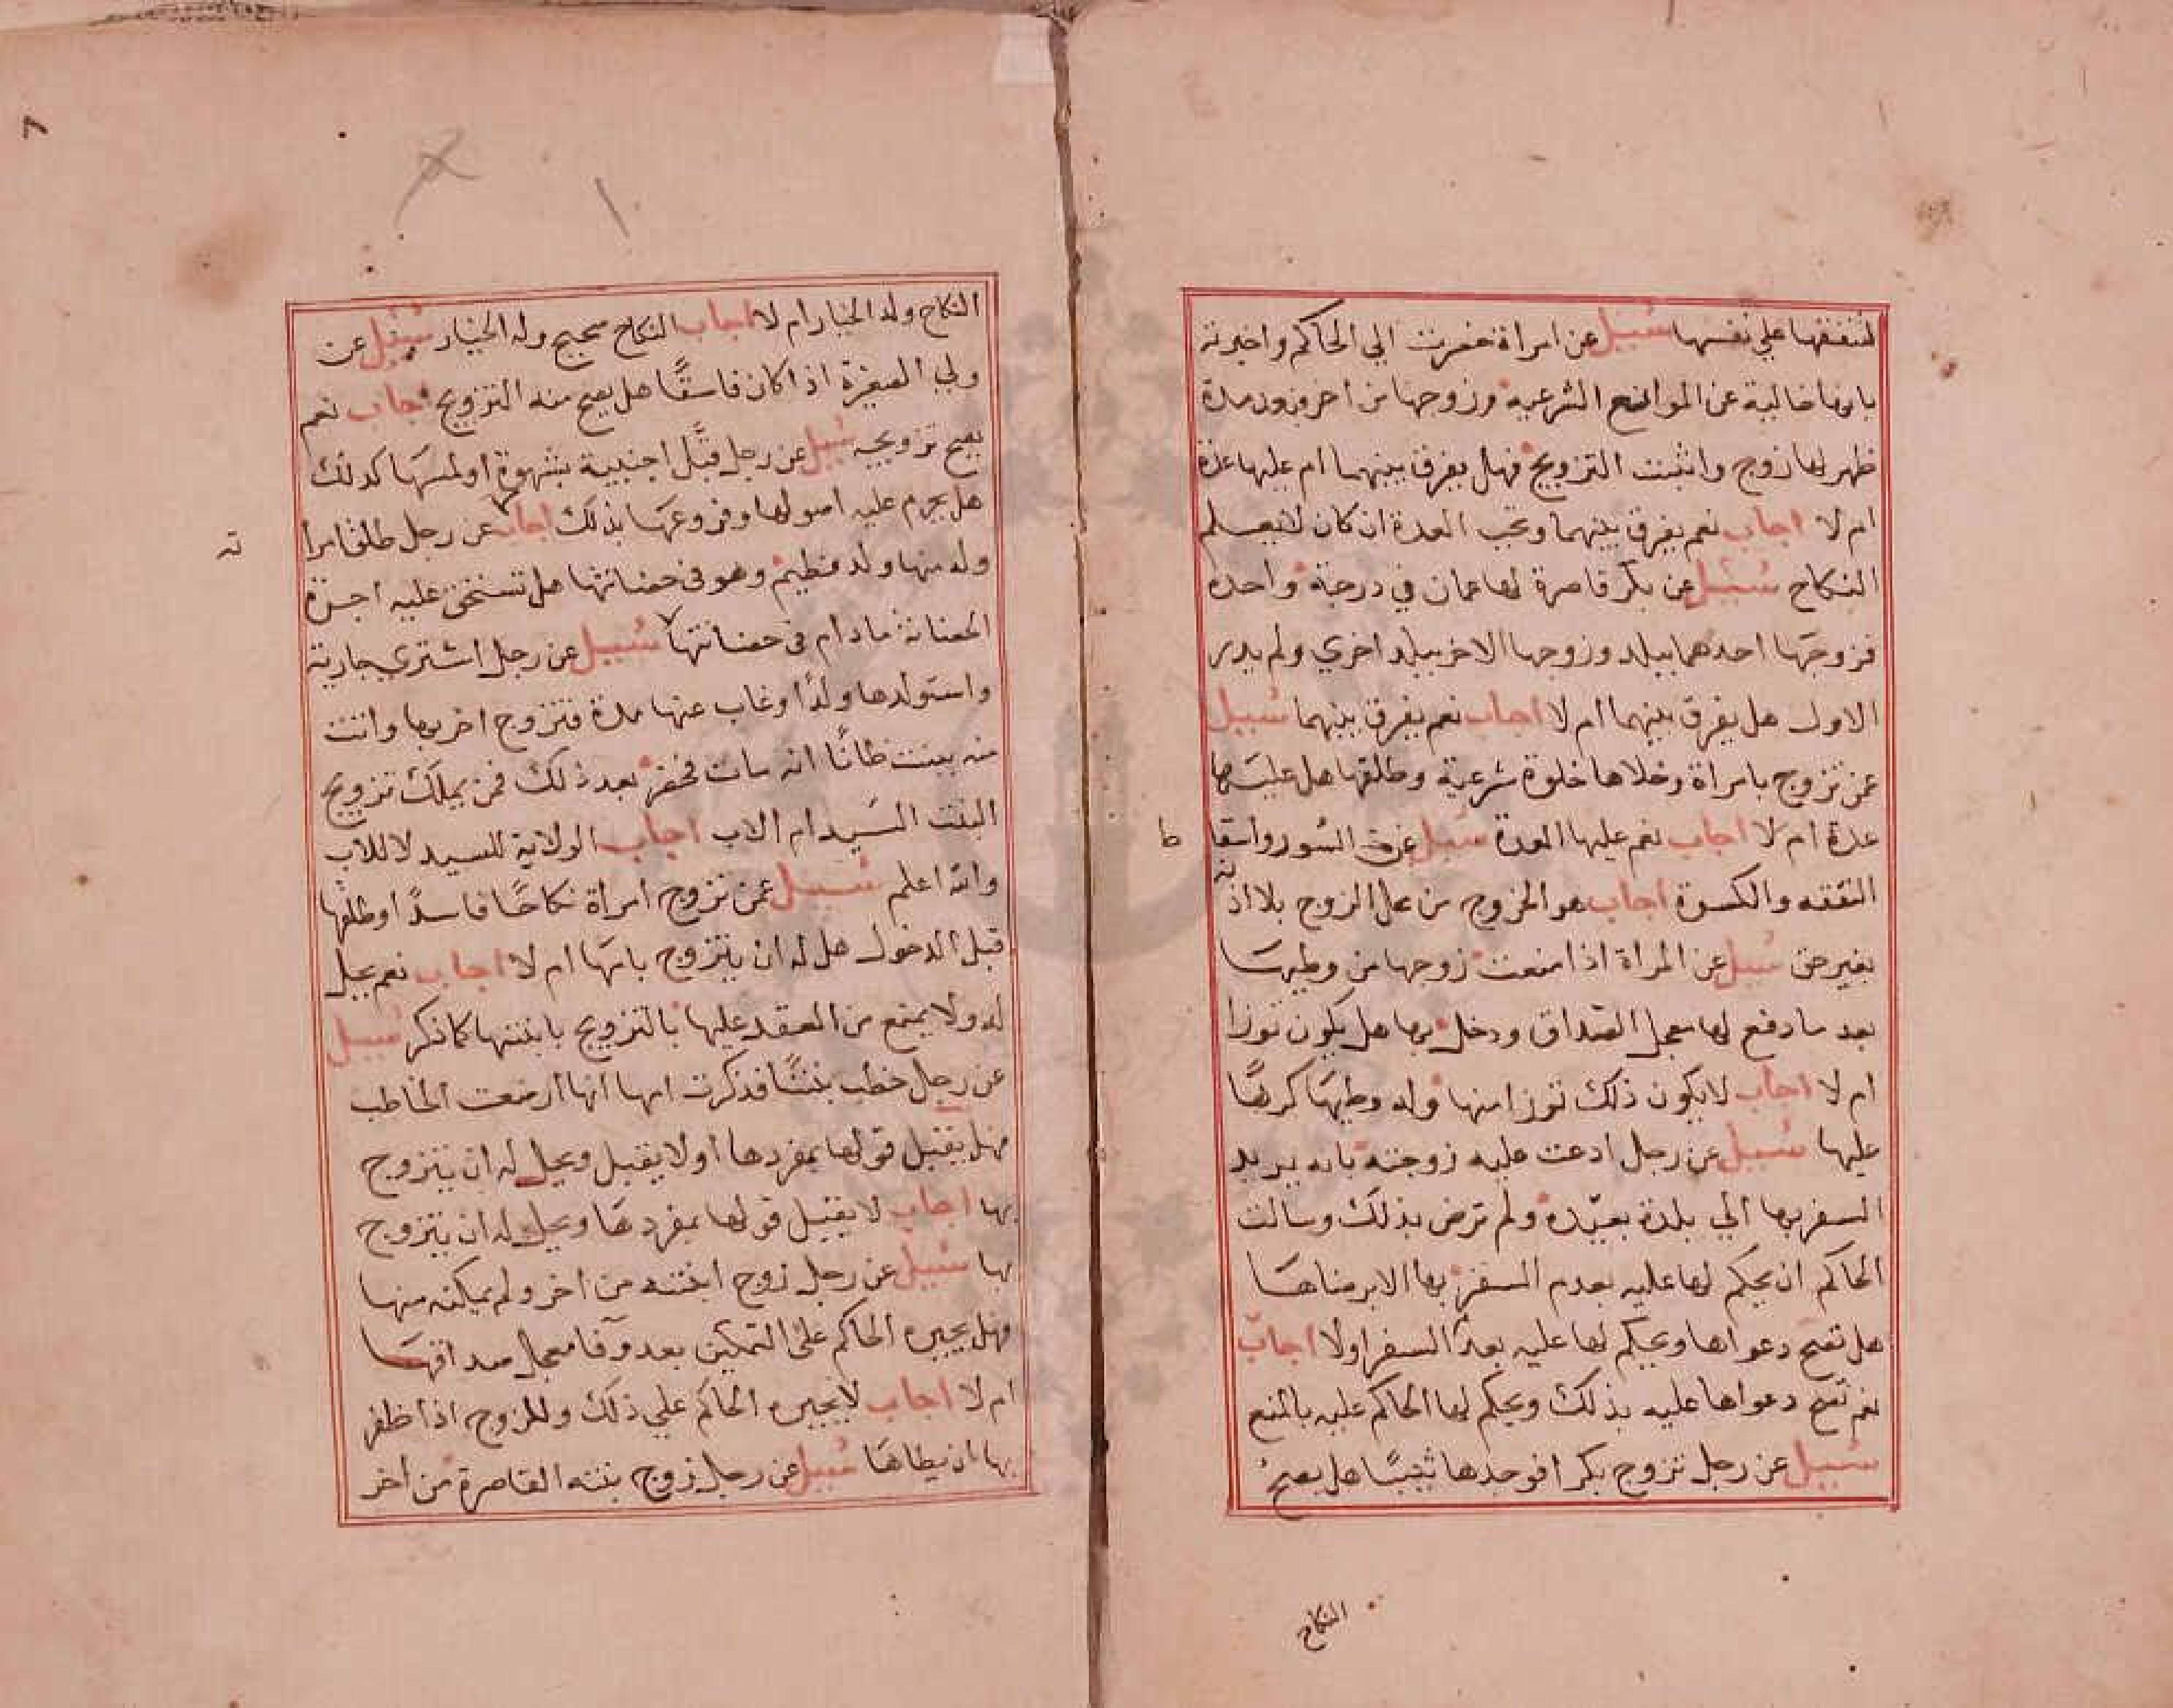 لتنفقها علي نفسها سُئِل عن امراة حضرت الي الحاكم واخبرته
بانها خالية عن الموانع الشرعيه وزوجها من اخر وبعد مدة
ظهر لها زوج واثبت التزويج فهل يفرق بينهما ام عليها عدة
ام لا اجاب نعم يفرق بينهما وتجب العدة ان كان لا يعلم
النكاح سُئِل عن بكر قاصرة لها عمان في درجة واحده
فزوجها احدهما ببلد وزوجها الاخر ببلد اخري ولم يدر
الاول هل يفرق بينهما ام لا اجاب نعم يفرق بينهما سُئِل
عمن تزوج بامراة وخلاها خلوة شرعية وطلقها هل عليها
عدة ام لا اجاب نعم عليها العدة سُئِل عن النشوز واسقا
ط
النفقه والكسوة اجاب هو الخروج من محل الزوج بلا اذنه
بغير حق سُئِل عن المراة اذا منعت زوجها من وطيها
بعد ما دفع لها معجل الصداق ودخل بها هل يكون نوزا
ام لا اجاب لا يكون ذلك نوزا منها وله وطيها كرها
عليها سُئِل عن رجل ادعت عليه زوجته بانه يريد
السفر بها الي بلدة بعيده ولم ترض بذلك وسالت
الحاكم ان يحكم لها عليه بعدم السفر بها الا برضاها
هل تصح دعواها ويحكم لها عليه بعدم السفر اولا اجاب
نعم تصح دعواها عليه بذلك ويحكم لها الحاكم عليه بالمنع
سُئِل عن رجل تزوج بكرا فوجدها ثيبًا هل يصح
النكاح
النكاح وله الخيار ام لا اجاب النكاح صحيح وله الخيار سُئِل عن
ولي الصغيرة اذا كان فاسقًا هل يصح منه التزويج اجاب نعم
يصح تزويجه سُئِل عن رجل قبَّل اجنبية بشهوة او لمسها كذلك
هل يحرم عليه اصولها وفروعها بذلك اجاب عن رجل طلق امرا
ته
وله منها ولد فطيم وهو في حضانتها هل تستحق عليه اجرة
الحضانة ما دام في حضانتها سُئِل عن رجل اشتري جارية
واستولدها ولدًا وغاب عنها مدة فتزوج اخر بها واتت
منه ببنت ظانًا انه مات فحضر بعد ذلك فمن يملك تزويج
البنت السيد ام الاب اجاب الولاية للسيد لا للاب
والله اعلم سُئِل عمن تزوج امراة نكاحًا فاسدًا وطلقها
قبل الدخول هل له ان يتزوج بامها ام لا اجاب نعم يحل
له ولا يمنع من العقد عليها بالتزويج بابنتها كما ذكر سُئِل
عن رجل خطب بنتًا فذكرت امها انها ارضعت الخاطب
فهل يقبل قولها بمفردها او لا يقبل ويحل له ان يتزوج
بها اجاب لا يقبل قولها بمفردها ويحل له ان يتزوج
بها سُئِل عن رجل زوج ابنته من اخر ولم يمكنه منها
فهل يجبره الحاكم علي التمكين بعد وفا معجل صداقها
ام لا اجاب لا يجبره الحاكم علي ذلك وللزوج اذا ظفر
بها ان يطاها سُئِل عن رجل زوج بنته القاصرة من اخر